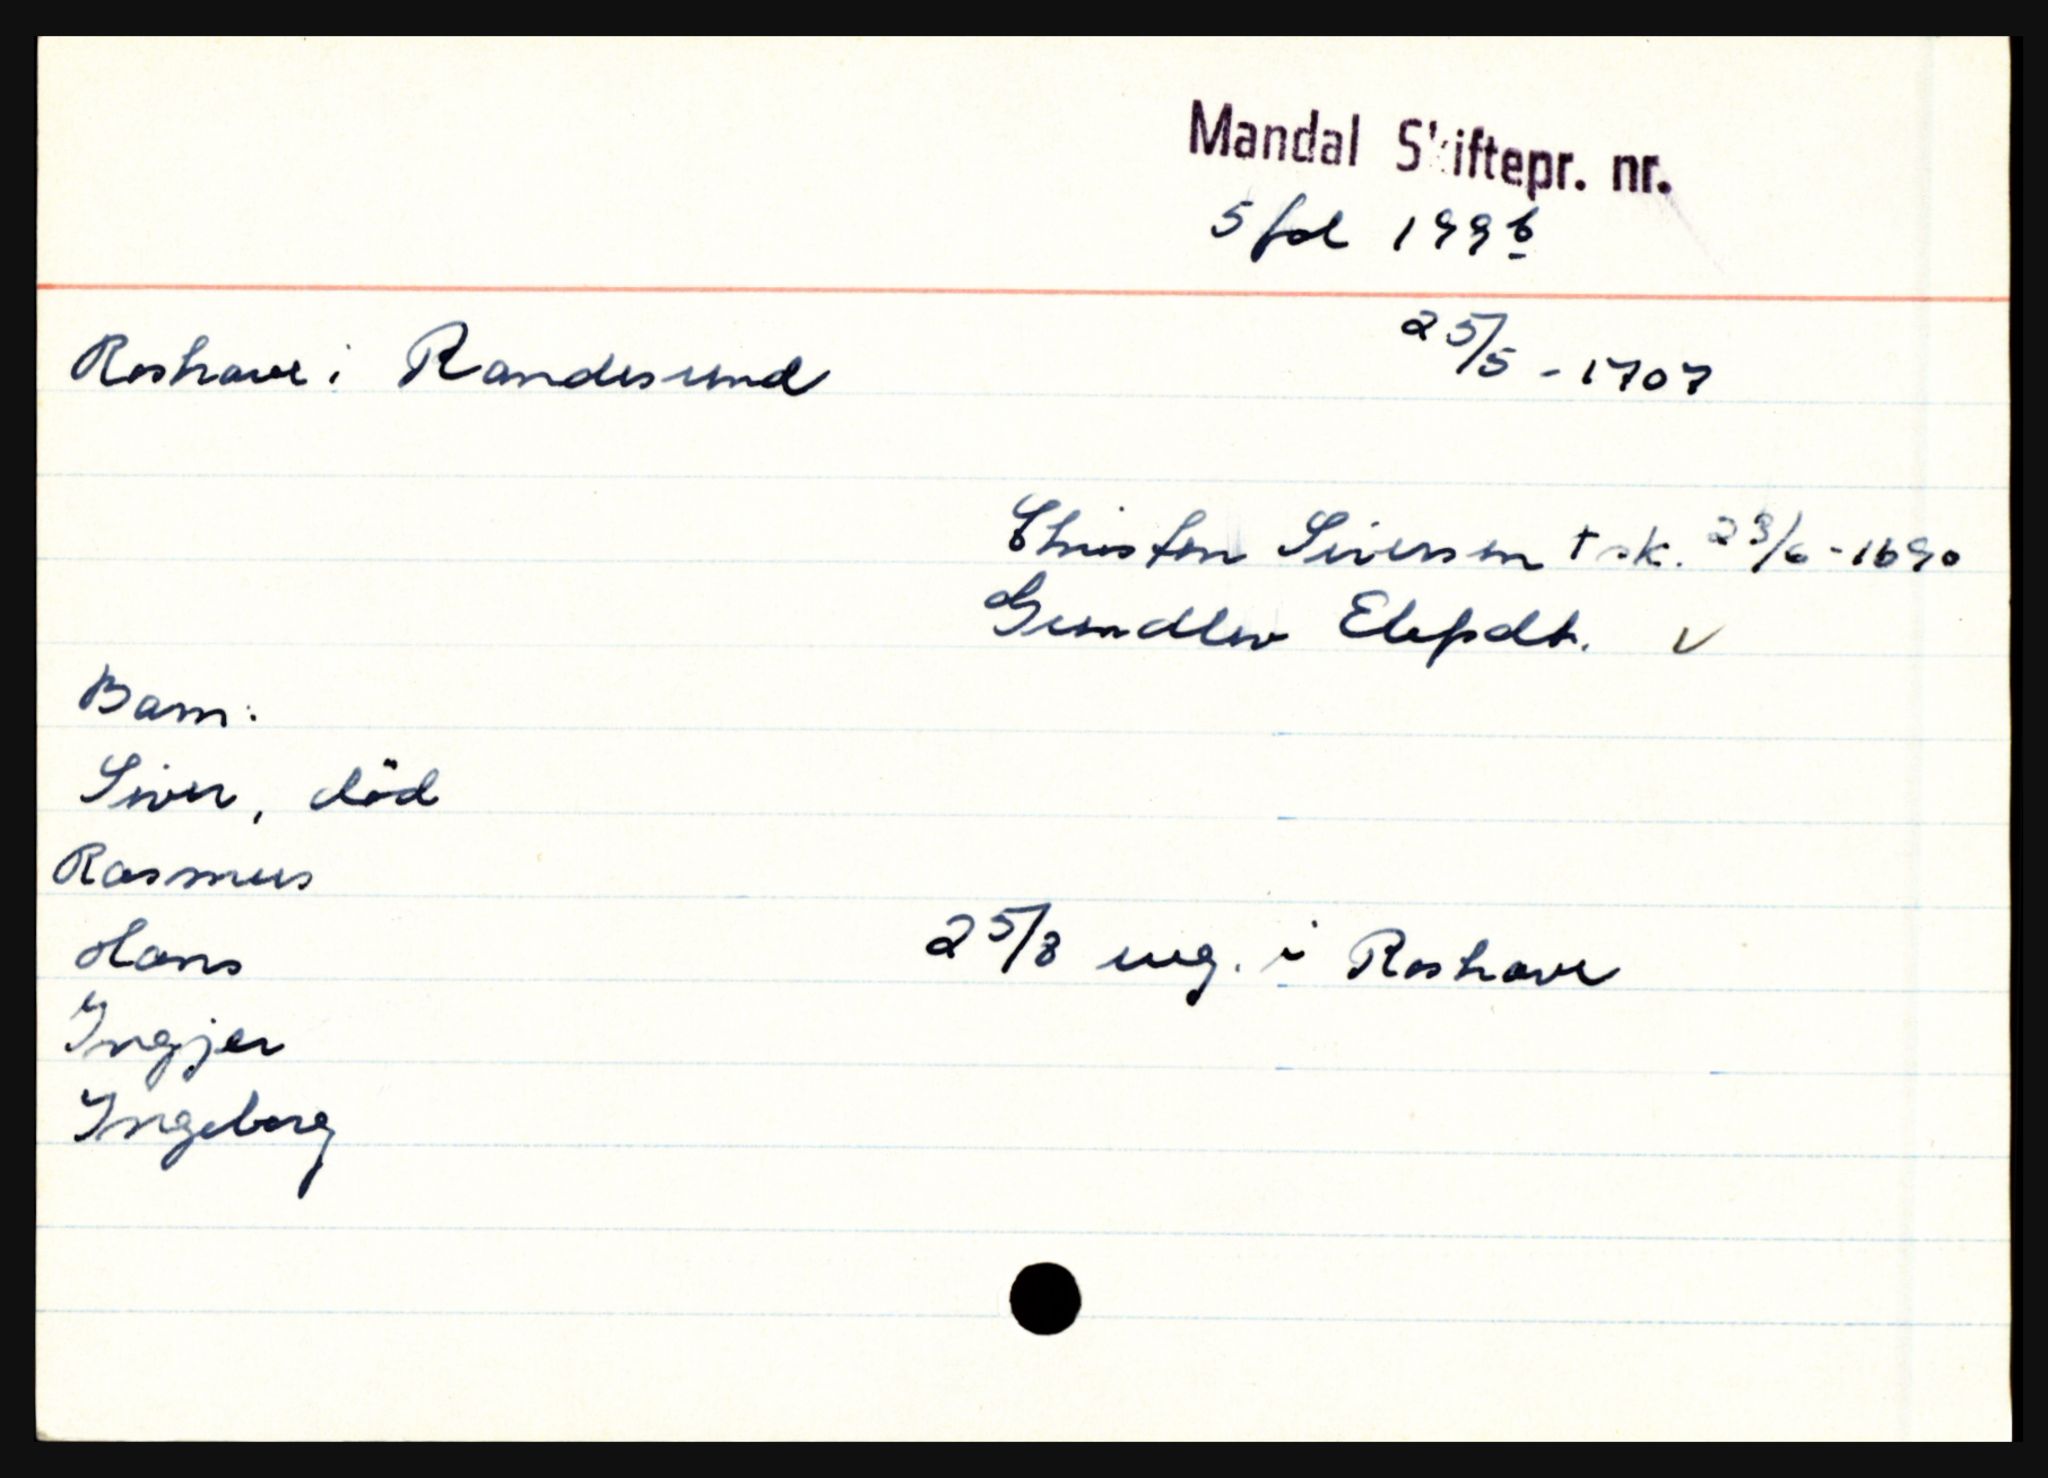 Mandal Skiftepr. nr.
5 fol 199b
Roshave i Randesund 25/5 - 1707
Christen Siversen † sk. 23/6 - 1690
Gundlev Elefsdt. v
Barn:
Siver, död
Rasmus
Hans 25/8 ug. i Roshave
Ingjer
Ingeborg